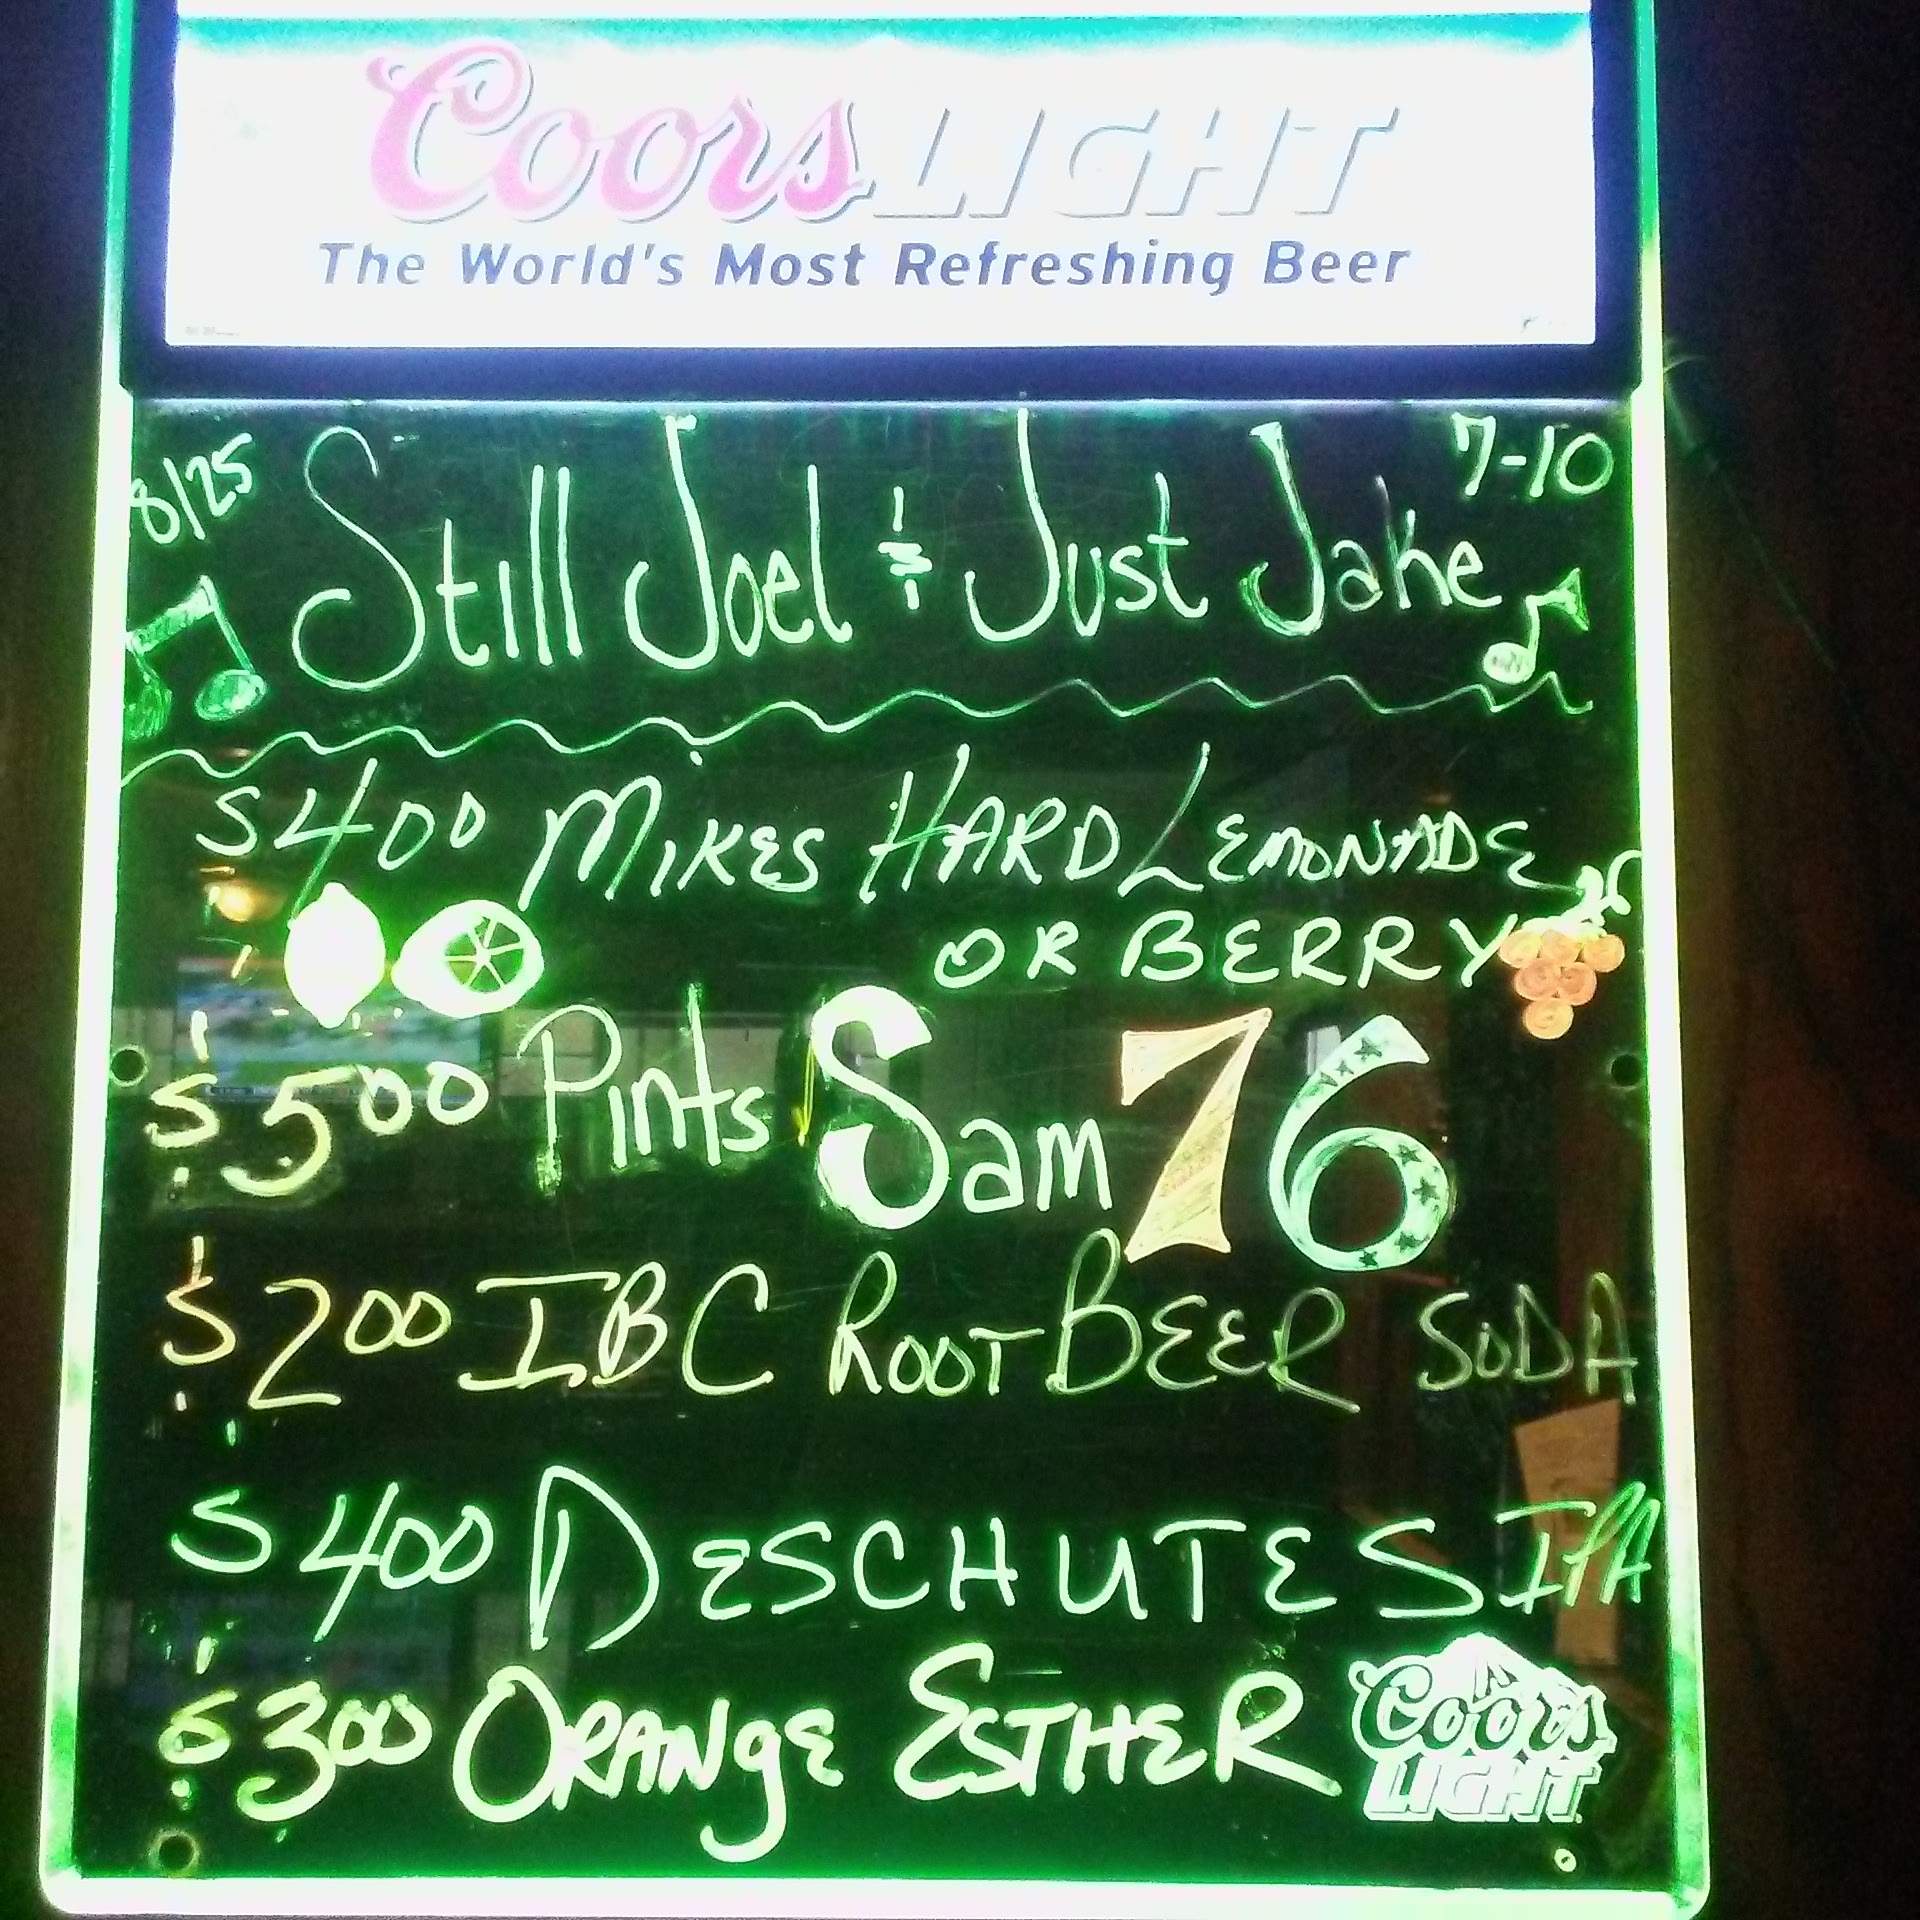 Coors LIGHT
The World's Most Refreshing Beer
8/25 Still Joel & Just Jake 7-10
$400 MIKES HARD LEMONADE
OR BERRY
$500 Pints Sam 76
$200 IBC ROOT BEER SODA
$400 DESCHUTES IPA
$300 ORANGE ESTHER
Coors
LIGHT